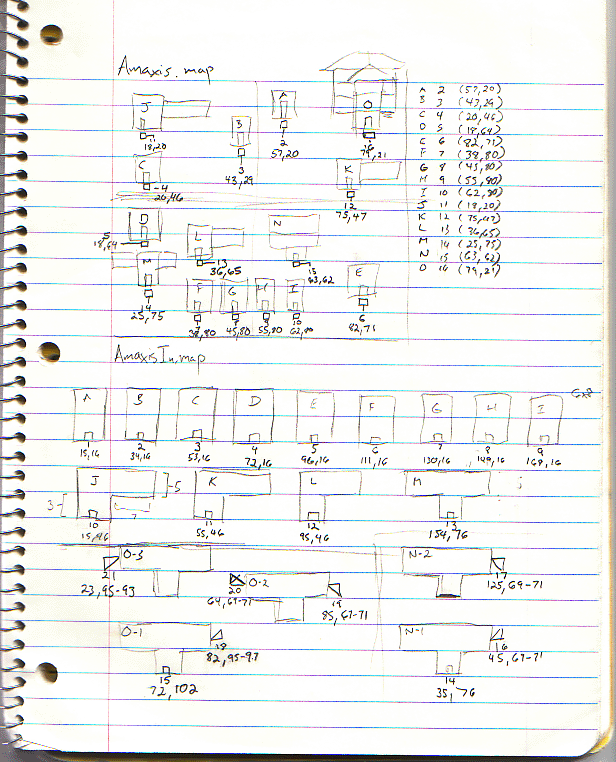 Amaxis.map
J
11
18,20
B
3
43,29
A
2
57,20
O
16
79,21
C
4
20,46
K
12
75,47
D
5
18,64
L
13
36,65
N
15
63,62
M
14
25,75
F
7
38,80
G
8
45,80
H
9
55,80
I
10
62,80
E
6
82,71
A 2 (57,20)
B 3 (43,29)
C 4 (20,46)
D 5 (18,64)
E 6 (82,71)
F 7 (38,80)
G 8 (45,80)
H 9 (55,80)
I 10 (62,80)
J 11 (18,20)
K 12 (75,47)
L 13 (36,65)
M 14 (25,75)
N 15 (63,62)
O 16 (79,21)
AmaxisIn.map
6x8
A B C D E F G H I
1 2 3 4 5 6 7 8 9
15,16 34,16 53,16 72,16 96,16 111,16 130,16 149,16 168,16
J K L M
5
3
7
10 11 12 13
15,46 55,46 95,46 154,76
O-3 O-2 N-2
21 20 19 17
23,95-93 64,67-71 85,67-71 125,69-71
O-1 N-1
18 16
82,95-97 45,67-71
15 14
72,102 35,76